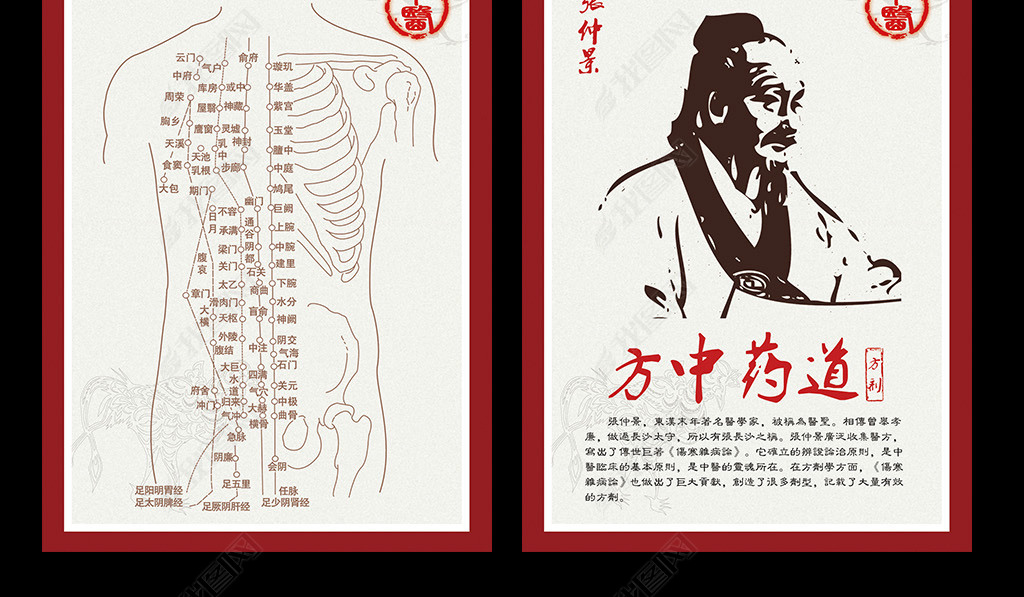 醫
云门
俞府
气户
璇玑
中府
库房
或中
华盖
周荣
屋翳
神藏
紫宫
胸乡
鹰窗
灵墟
玉堂
天溪
乳中
神封
膻中
天池
食窦
乳根
步廊
中庭
大包
期门
鸠尾
幽门
日月
不容
巨阙
承满
通谷
上脘
梁门
阴都
中脘
腹哀
关门
石关
建里
太乙
商曲
下脘
章门
滑肉门
水分
大横
天枢
肓俞
神阙
外陵
阴交
腹结
中注
气海
大巨
四满
石门
水道
府舍
气穴
关元
冲门
归来
大赫
中极
气冲
横骨
曲骨
急脉
阴廉
会阴
足五里
足阳明胃经
任脉
足太阴脾经
足厥阴肝经
足少阴肾经
醫
張仲景
方中药道
方剂
張仲景，東漢末年著名醫學家，被稱為醫聖。相傳曾舉孝
廉，做過長沙太守，所以有張長沙之稱。張仲景廣泛收集醫方，
寫出了傳世巨著《傷寒雜病論》。它確立的辨證論治原則，是中
醫臨床的基本原則，是中醫的靈魂所在。在方劑學方面，《傷寒
雜病論》也做出了巨大貢獻，創造了很多劑型，記載了大量有效
的方劑。